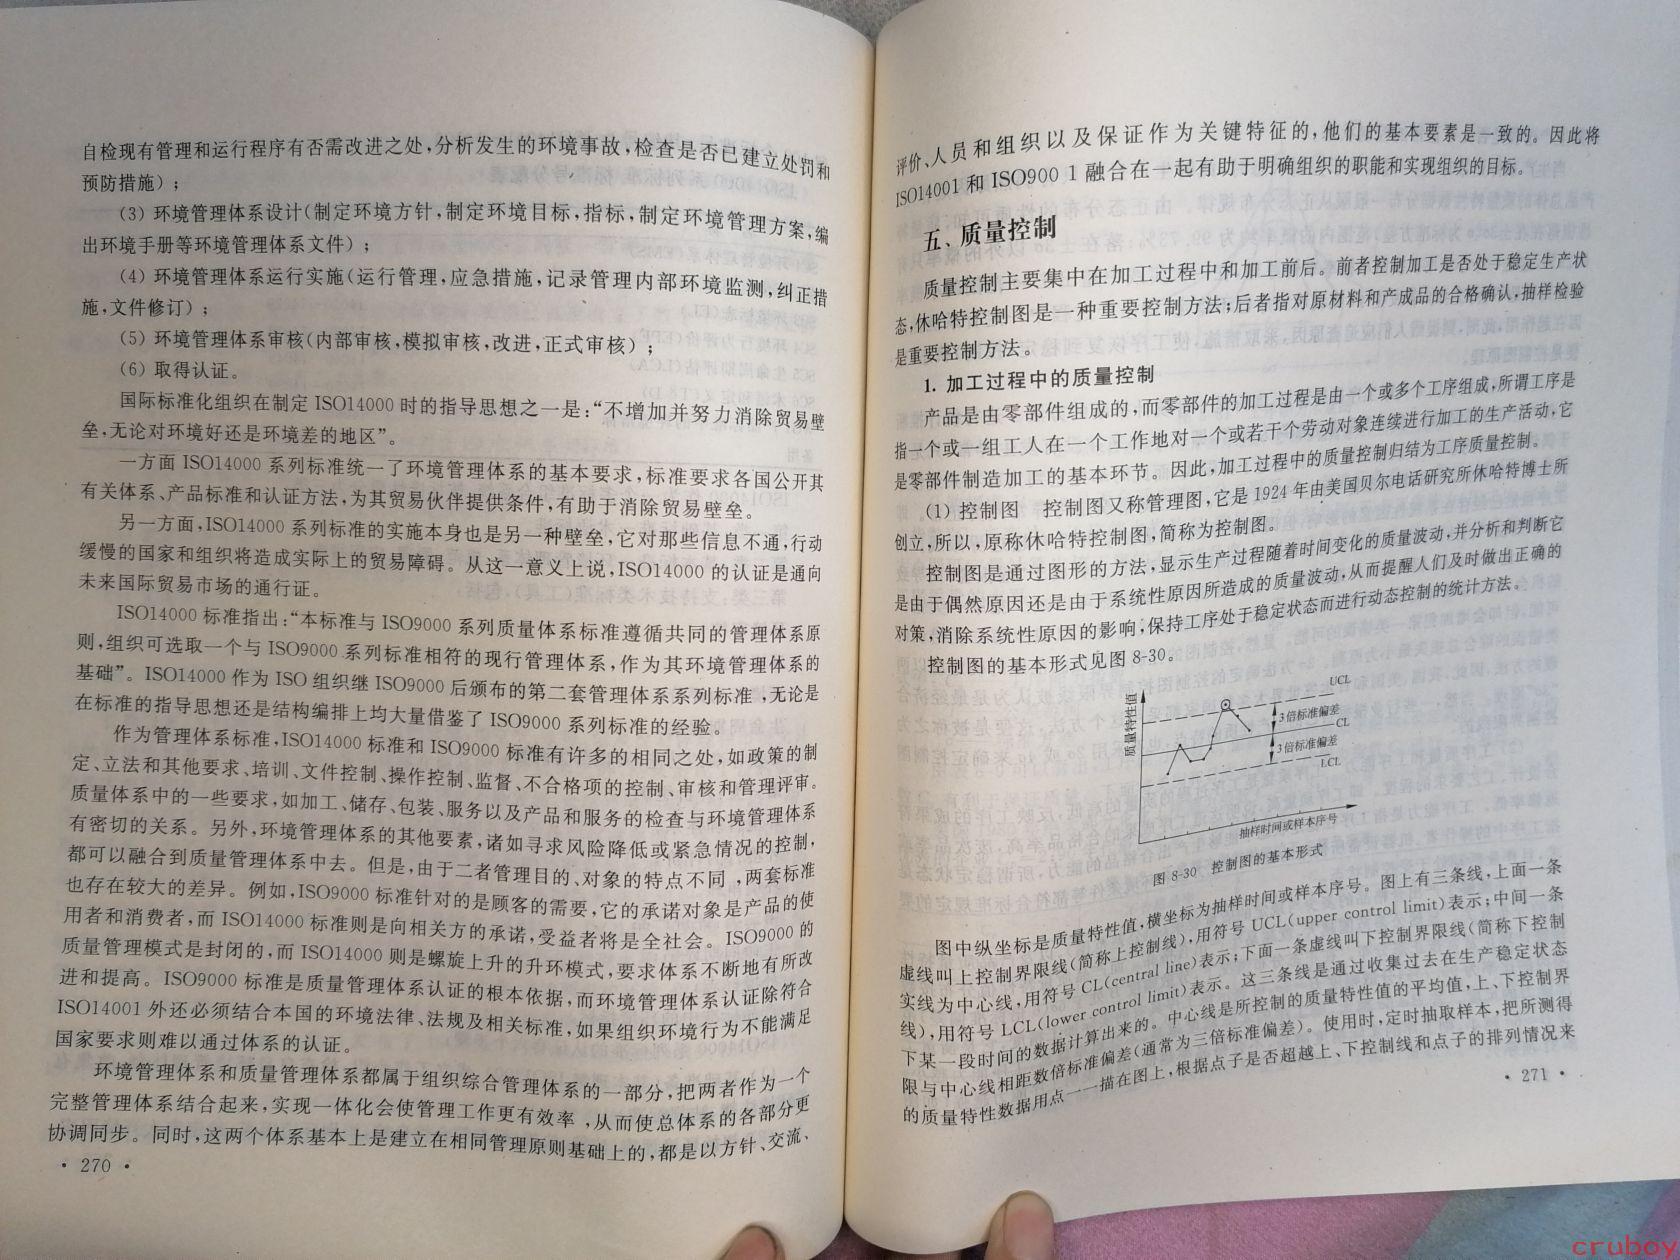 自检现有管理和运行程序有否需改进之处,分析发生的环境事故,检查是否已建立处罚和
预防措施);
(3) 环境管理体系设计(制定环境方针,制定环境目标,指标,制定环境管理方案,编
出环境手册等环境管理体系文件);
(4) 环境管理体系运行实施(运行管理,应急措施,记录管理内部环境监测,纠正措
施,文件修订);
(5) 环境管理体系审核(内部审核,模拟审核,改进,正式审核);
(6) 取得认证。
国际标准化组织在制定 ISO14000 时的指导思想之一是:“不增加并努力消除贸易壁
垒,无论对环境好还是环境差的地区”。
一方面 ISO14000 系列标准统一了环境管理体系的基本要求,标准要求各国公开其
有关体系、产品标准和认证方法,为其贸易伙伴提供条件,有助于消除贸易壁垒。
另一方面,ISO14000 系列标准的实施本身也是另一种壁垒,它对那些信息不通,行动
缓慢的国家和组织将造成实际上的贸易障碍。从这一意义上说,ISO14000 的认证是通向
未来国际贸易市场的通行证。
ISO14000 标准指出:“本标准与 ISO9000 系列质量体系标准遵循共同的管理体系原
则,组织可选取一个与 ISO9000 系列标准相符的现行管理体系,作为其环境管理体系的
基础”。ISO14000 作为 ISO 组织继 ISO9000 后颁布的第二套管理体系系列标准,无论是
在标准的指导思想还是结构编排上均大量借鉴了 ISO9000 系列标准的经验。
作为管理体系标准,ISO14000 标准和 ISO9000 标准有许多的相同之处,如政策的制
定、立法和其他要求、培训、文件控制、操作控制、监督、不合格项的控制、审核和管理评审。
质量体系中的一些要求,如加工、储存、包装、服务以及产品和服务的检查与环境管理体系
有密切的关系。另外,环境管理体系的其他要素,诸如寻求风险降低或紧急情况的控制,
都可以融合到质量管理体系中去。但是,由于二者管理目的、对象的特点不同,两套标准
也存在较大的差异。例如,ISO9000 标准针对的是顾客的需要,它的承诺对象是产品的使
用者和消费者,而 ISO14000 标准则是向相关方的承诺,受益者将是全社会。ISO9000 的
质量管理模式是封闭的,而 ISO14000 则是螺旋上升的升环模式,要求体系不断地有所改
进和提高。ISO9000 标准是质量管理体系认证的根本依据,而环境管理体系认证除符合
ISO14001 外还必须结合本国的环境法律、法规及相关标准,如果组织环境行为不能满足
国家要求则难以通过体系的认证。
环境管理体系和质量管理体系都属于组织综合管理体系的一部分,把两者作为一个
完整管理体系结合起来,实现一体化会使管理工作更有效率,从而使总体系的各部分更
协调同步。同时,这两个体系基本上是建立在相同管理原则基础上的,都是以方针、交流、
· 270 ·
评价、人员和组织以及保证作为关键特征的,他们的基本要素是一致的。因此将
ISO14001 和 ISO900 1 融合在一起有助于明确组织的职能和实现组织的目标。
五、质量控制
质量控制主要集中在加工过程中和加工前后。前者控制加工是否处于稳定生产状
态,休哈特控制图是一种重要控制方法;后者指对原材料和产成品的合格确认,抽样检验
是重要控制方法。
1. 加工过程中的质量控制
产品是由零部件组成的,而零部件的加工过程是由一个或多个工序组成,所谓工序是
指一个或一组工人在一个工作地对一个或若干个劳动对象连续进行加工的生产活动,它
是零部件制造加工的基本环节。因此,加工过程中的质量控制归结为工序质量控制。
(1) 控制图 控制图又称管理图,它是 1924 年由美国贝尔电话研究所休哈特博士所
创立,所以,原称休哈特控制图,简称为控制图。
控制图是通过图形的方法,显示生产过程随着时间变化的质量波动,并分析和判断它
是由于偶然原因还是由于系统性原因所造成的质量波动,从而提醒人们及时做出正确的
对策,消除系统性原因的影响,保持工序处于稳定状态而进行动态控制的统计方法。
控制图的基本形式见图 8-30。
质量特性值
UCL
3倍标准偏差
CL
3倍标准偏差
LCL
抽样时间或样本序号
图 8-30 控制图的基本形式
图中纵坐标是质量特性值,横坐标为抽样时间或样本序号。图上有三条线,上面一条
虚线叫上控制界限线(简称上控制线),用符号 UCL(upper control limit)表示;中间一条
实线为中心线,用符号 CL(central line)表示;下面一条虚线叫下控制界限线(简称下控制
线),用符号 LCL(lower control limit)表示。这三条线是通过收集过去在生产稳定状态
下某一段时间的数据计算出来的。中心线是所控制的质量特性值的平均值,上、下控制界
限与中心线相距数倍标准偏差(通常为三倍标准偏差)。使用时,定时抽取样本,把所测得
的质量特性数据用点一一描在图上,根据点子是否超越上、下控制线和点子的排列情况来
· 271 ·
cruboy